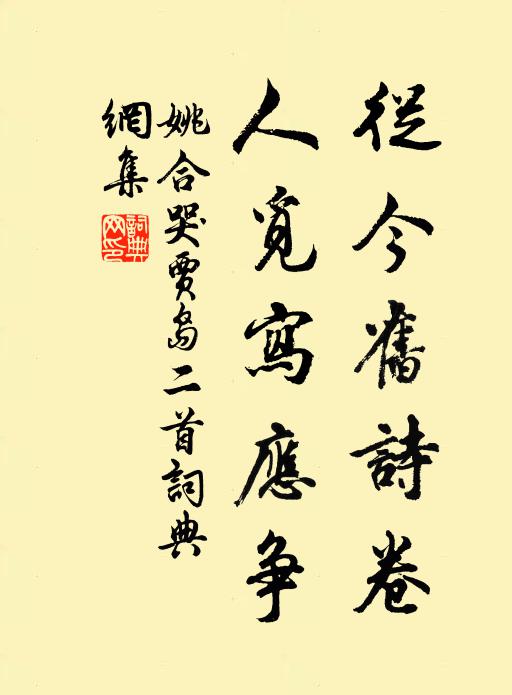 從今舊詩卷
人覓寫應争
姚合哭賈島二首詞典
網集
詞典網印